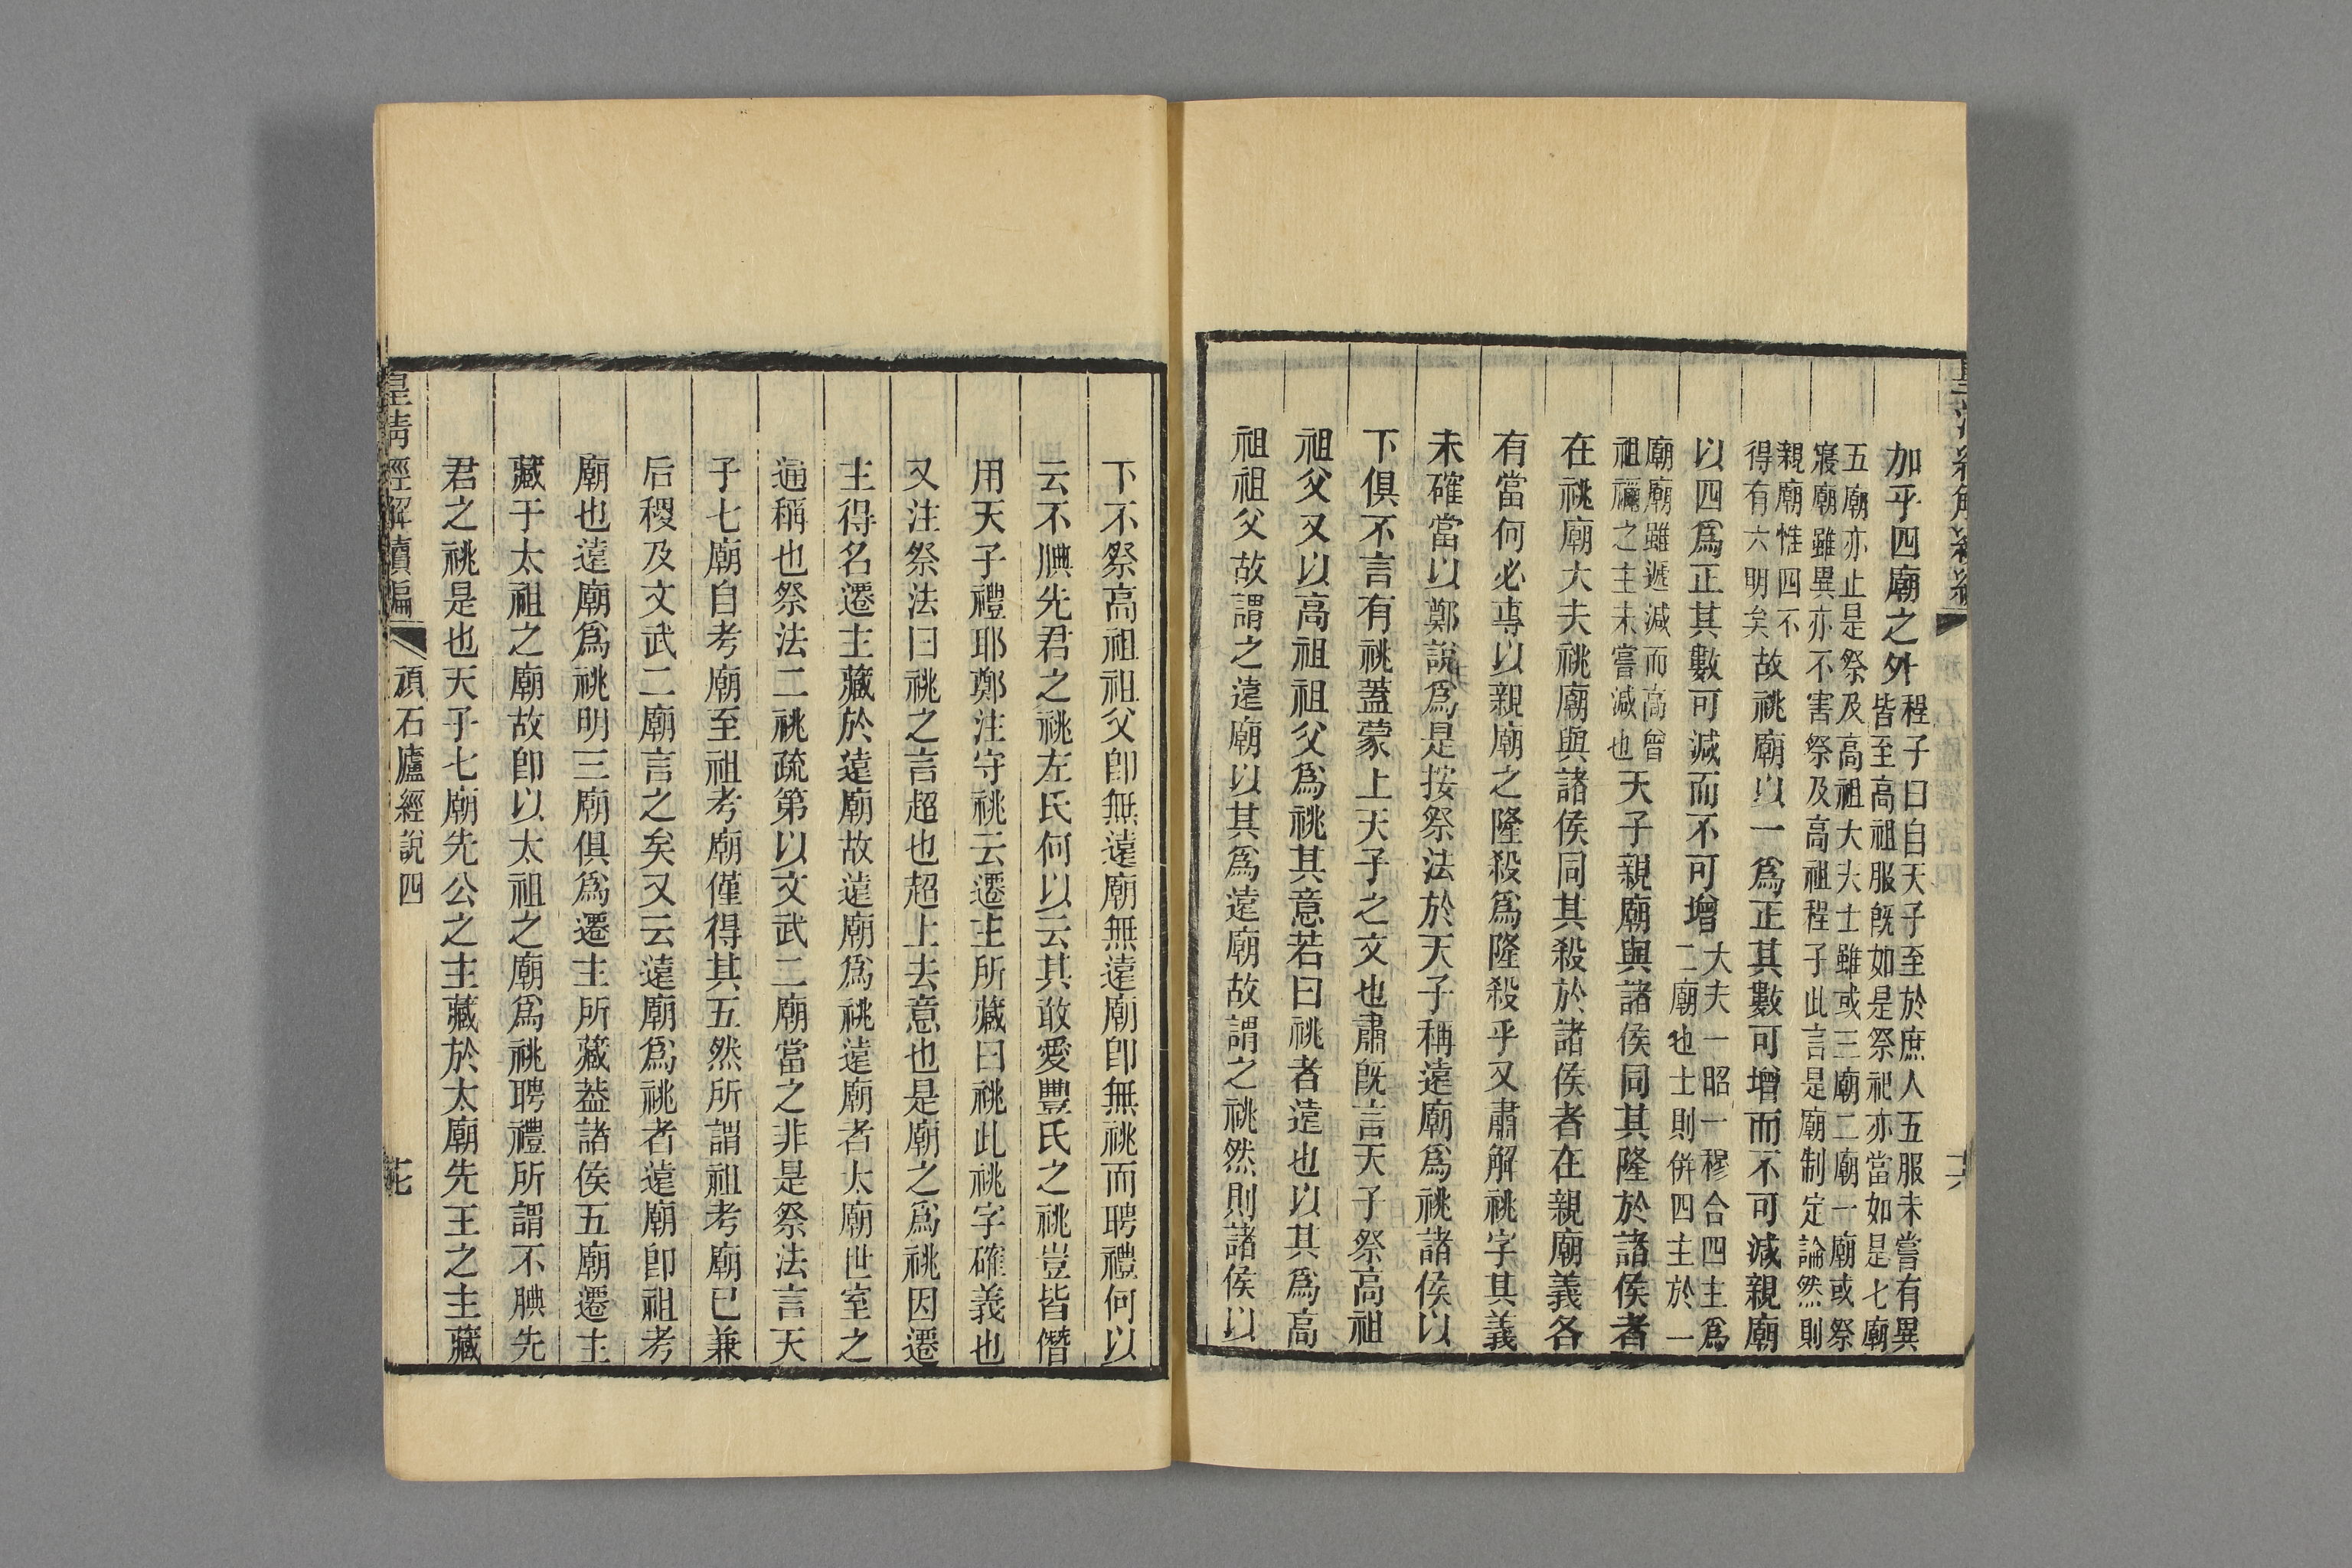 加乎四廟之外程子曰自天子至於庶人五服未嘗有異皆至高祖服旣如是祭祀亦當如是七廟
五廟亦止是祭及高祖大夫士雖或三廟二廟一廟或祭寢廟雖異亦不害祭及高祖程子此言是廟制定論然則
親廟惟四不得有六明矣故祧廟以一爲正其數可增而不可減親廟
以四爲正其數可減而不可增大夫一昭一穆合四主爲二廟也士則併四主於一
廟廟雖遞減而高曾祖禰之主未嘗減也天子親廟與諸侯同其隆於諸侯者
在祧廟大夫祧廟與諸侯同其殺於諸侯者在親廟義各
有當何必專以親廟之隆殺爲隆殺乎又肅解祧字其義
未確當以鄭說爲是按祭法於天子稱遠廟爲祧諸侯以
下俱不言有祧蓋蒙上天子之文也肅旣言天子祭高祖
祖父又以高祖祖父爲祧其意若曰祧者遠也以其爲高
祖祖父故謂之遠廟以其爲遠廟故謂之祧然則諸侯以
下不祭高祖祖父卽無遠廟無遠廟卽無祧而聘禮何以
云不腆先君之祧左氏何以云其敢愛豐氏之祧豈皆僭
用天子禮耶鄭注守祧云遷主所藏曰祧此祧字確義也
又注祭法曰祧之言超也超上去意也是廟之爲祧因遷
主得名遷主藏於遠廟故遠廟爲祧遠廟者太廟世室之
通稱也祭法二祧疏第以文武二廟當之非是祭法言天
子七廟自考廟至祖考廟僅得其五然所謂祖考廟已兼
后稷及文武二廟言之矣又云遠廟爲祧者遠廟卽祖考
廟也遠廟爲祧明三廟俱爲遷主所藏葢諸侯五廟遷主
藏于太祖之廟故卽以太祖之廟爲祧聘禮所謂不腆先
君之祧是也天子七廟先公之主藏於太廟先王之主藏
皇清經解續編
頑石廬經說四